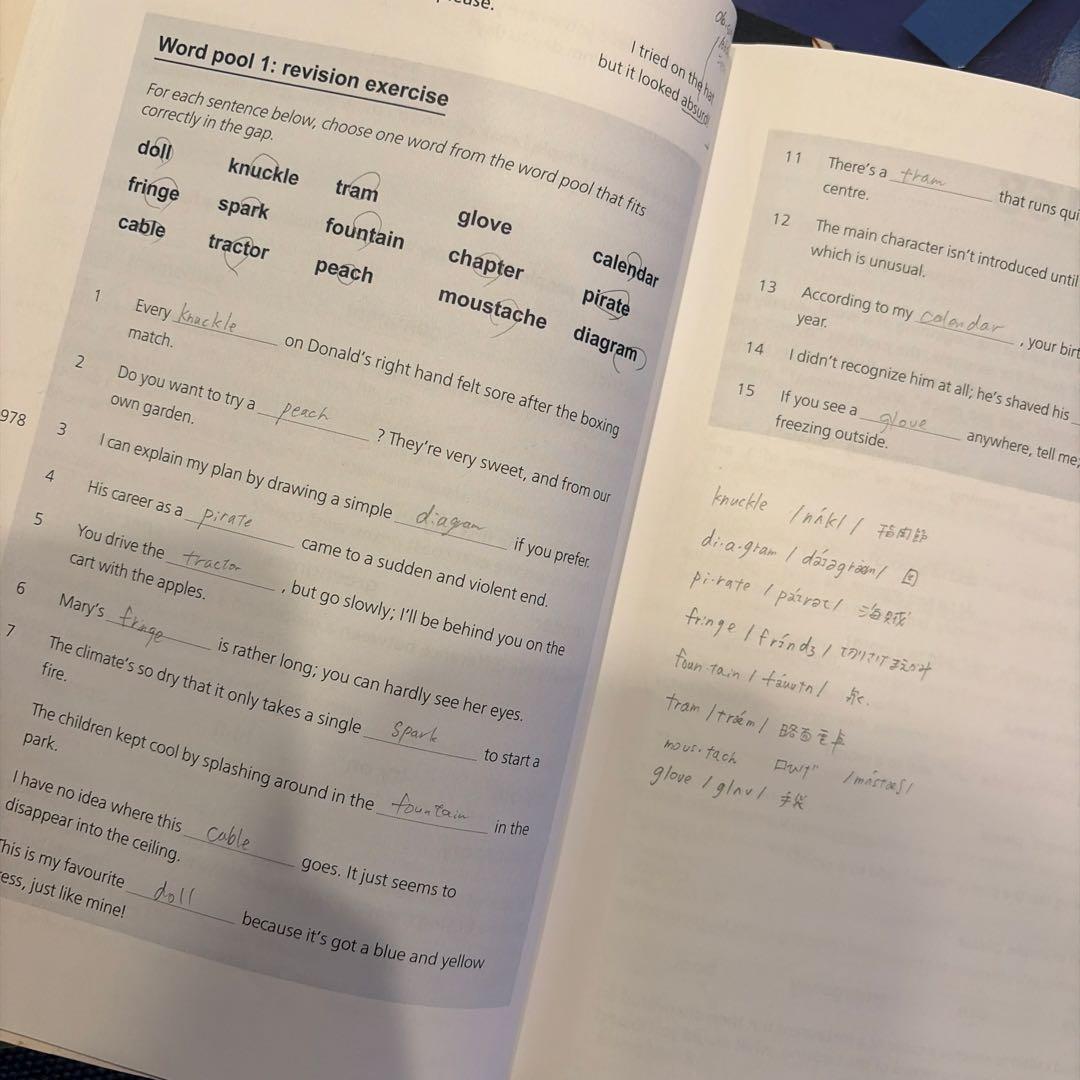 I tried on the hat
but it looked absurd
Word pool 1: revision exercise
For each sentence below, choose one word from the word pool that fits
correctly in the gap.
doll knuckle tram glove calendar
fringe spark fountain chapter pirate
cable tractor peach moustache diagram
1 Every knuckle on Donald's right hand felt sore after the boxing
match.
2 Do you want to try a peach ? They're very sweet, and from our
own garden.
3 I can explain my plan by drawing a simple diagram if you prefer.
4 His career as a pirate came to a sudden and violent end.
5 You drive the tractor , but go slowly; I'll be behind you on the
cart with the apples.
6 Mary's fringe is rather long; you can hardly see her eyes.
7 The climate's so dry that it only takes a single spark to start a
fire.
The children kept cool by splashing around in the fountain in the
park.
I have no idea where this cable goes. It just seems to
disappear into the ceiling.
This is my favourite doll because it's got a blue and yellow
ess, just like mine!
978
11 There's a tram that runs qui
centre.
12 The main character isn't introduced until
which is unusual.
13 According to my calendar , your birt
year.
14 I didn't recognize him at all; he's shaved his
15 If you see a glove anywhere, tell me;
freezing outside.
knuckle /nʌ́kl/ 指関節
di·a·gram /dáiəgræm/ 図
pi·rate /páirət/ 海賊
fringe /fríndʒ/ 切りさげまえがみ
foun·tain /fáuntn/ 泉
tram /trǽm/ 路面電車
mous·tach 口ひげ /mʌ́stæʃ/
glove /glʌv/ 手袋